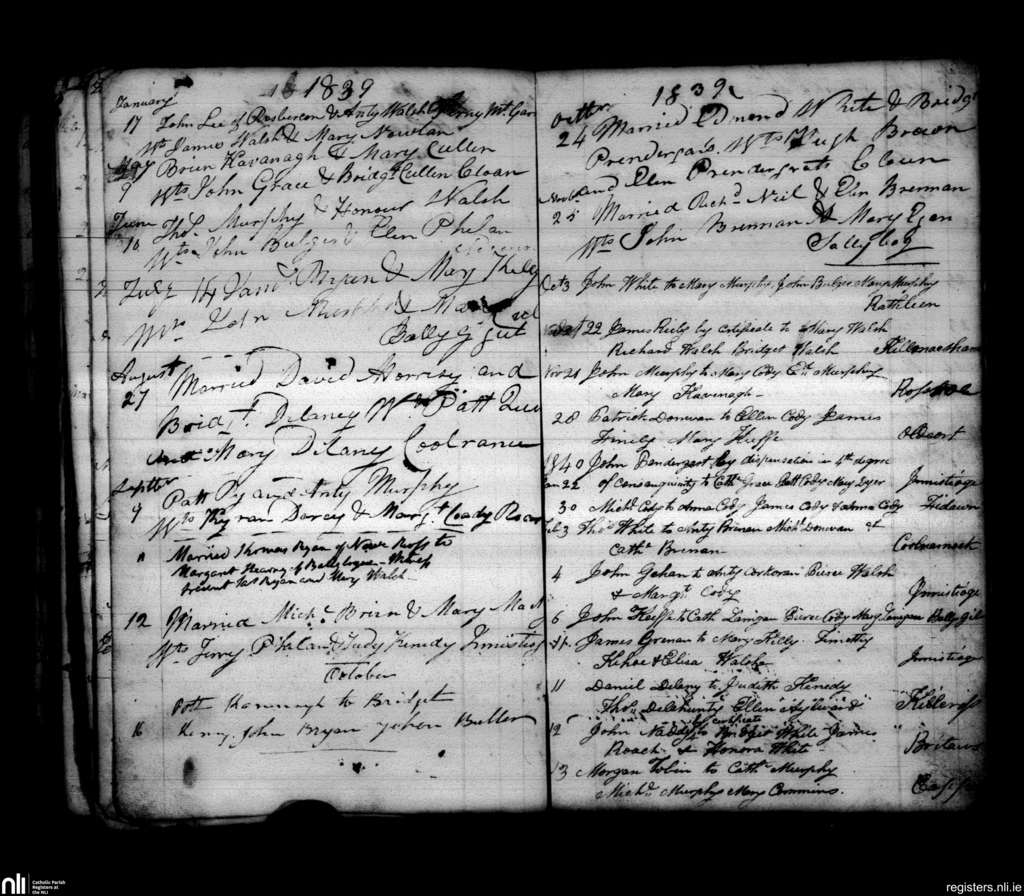 1839
January
17 John Lee of Rosbercon & Anty Walsh
Wts James Walsh & Mary Newlan
May
Brien Kavanagh & Mary Cullen
9 Wts John Grace & Bridgt Cullen Cloan
June Thos. Murphy & Honour Walsh
10 Wts John Bulger & Elen Phelan
July 14 Bryan & Mary Kelly
Wts John &
August
27 Married David Morrisy and
Bridt. Delaney Wts Patt
and Mary Dilany Coolranue
Septbr
9 Patt Ry and Anty Murphy
Wts Kyran Darcy & Margt. Coady
11 Married Thomas Ryan of New Ross to
Margaret Hearny of Witness
present Jas Ryan and Mary Walsh
12 Married Michl. Brien & Mary
Wts Terry Phelan & Judy Kenedy Innistiog
October
Patt Kavanagh to Bridget
16 Henry. John Bryan John Butler
1839
Octbr
24 Married Edmond White & Bridgt
Prendergass. Wts Hugh Brown
and Elen Prendergrats Cloun
Novbr
25 Married Richd. Neil & Elen Brennan
Wts John Brennan & Mary Egan
Sallybog
Oct 3 John White to Mary Murphy, John Bulger Mary Murphy
Rathleen
22 James Reily by certificate to Mary Walsh
Richard Walsh Bridget Walsh
Nov 21 John Murphy to Mary Cody Edd. Murphy
Mary Kavanagh
28 Patrick Donovan to Ellen Cody James
Mary Keeffe Oldcort
1840 John Pendergast by dispensation in 4th degree
Jan 22 of Consanguinity to Cathe Grace Patt Cody Mary Dyer Innistiage
30 Michl. Cody to Anna Cody James Cody & Anna Cody
3 Thos. White to Anty Brenan Michl. Donovan &
Cathe Brenan
4 John Gahan to Anty Corkoran Pierce Walsh
& Margt. Cody Innistiage
6 John Keeffe to Cath Lanigan Pierce Cody Mary Lanigan
James Grenan to Mary Kelly. Timothy
Kehoe & Eliza Walshe Innistiage
11 Daniel Delany to Judith Kenedy
Thos. Delehunty Ellen Aylward
by certificate
12 John Naddy to Bridget White James
Roach & Honora White
13 Morgan Tobin to Cathe Murphy
Michl. Murphy Mary Commins.
nli
Catholic Parish
Registers at
the NLI
registers.nli.ie